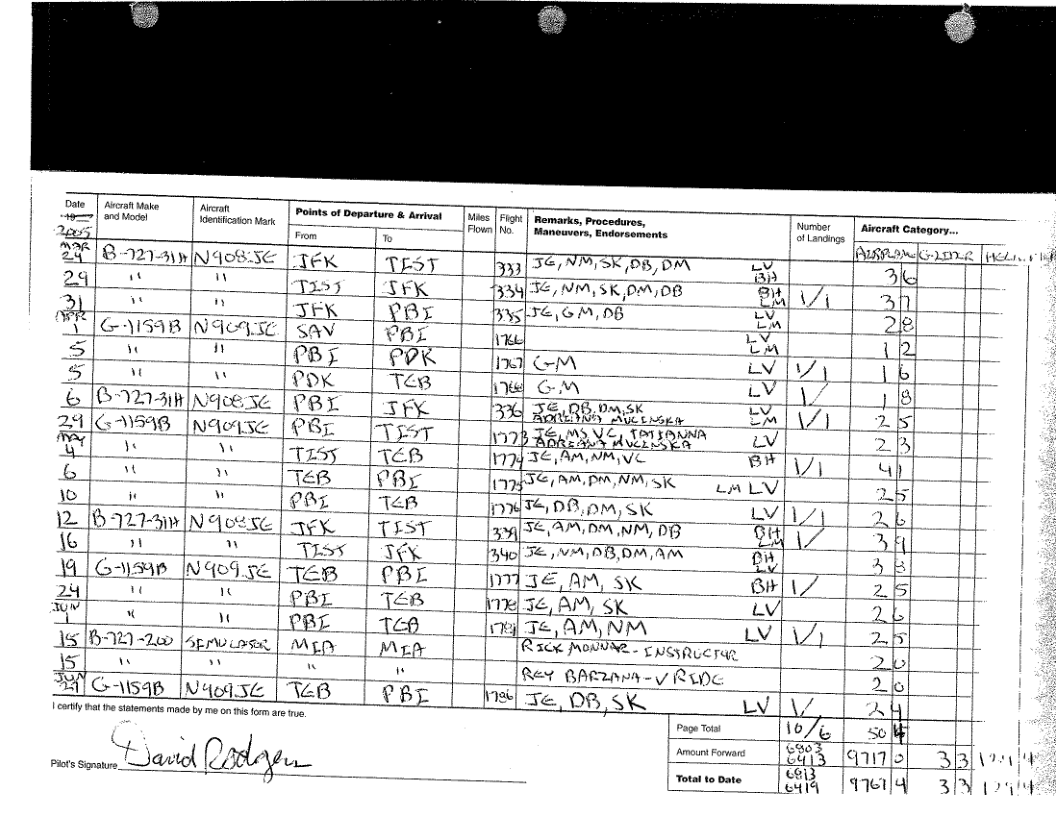 Date Aircraft Make and Model Aircraft Identification Mark Points of Departure & Arrival Miles Flown Flight No. Remarks, Procedures, Maneuvers, Endorsements Number of Landings Aircraft Category...
19 2005 From To AIRPLANE GLIDER
MAR 24 B-727-31H N908JE JFK TIST 333 JE, NM, SK, DB, DM LV BH 3 6
29 " " TIST JFK 334 JE, NM, SK, DM, DB BH LM 1/1 3 7
31 " " JFK PBI 335 JE, GM, DB LV LM 2 8
APR 1 G-1159B N909JE SAV PBI 1766 LV LM 1 2
5 " " PBI PDK 1767 GM LV 1/1 1 6
5 " " PDK TEB 1768 GM LV 1/ 1 8
6 B-727-31H N908JE PBI JFK 336 JE, DB, DM, SK ADRIANA MUCINSKA LV LM 1/1 2 5
29 G-1159B N909JE PBI TIST 1773 JE, MS, VC, TATIANNA ADRIANA MUCINSKA LV 2 3
MAY 4 " " TIST TEB 1774 JE, AM, NM, VC BH 1/1 4 1
6 " " TEB PBI 1775 JE, AM, DM, NM, SK LM LV 2 5
10 " " PBI TEB 1776 JE, DB, DM, SK LV 1/1 2 6
12 B-727-31H N908JE JFK TIST 339 JE, AM, DM, NM, DB BH LM 1/ 3 9
16 " " TIST JFK 340 JE, NM, DB, DM, AM BH LV 3 3
19 G-1159B N909JE TEB PBI 1777 JE, AM, SK BH 1/ 2 5
24 " " PBI TEB 1778 JE, AM, SK LV 2 6
JUN 1 " " PBI TEB 1781 JE, AM, NM LV 1/1 2 5
15 B-727-200 SIMULATOR MIA MIA RICK MONNAR - INSTRUCTOR 2 0
15 " " " " REY BARZANA - V RIDE 2 0
JUN 29 G-1159B N909JE TEB PBI 1786 JE, DB, SK LV 1/ 2 4
I certify that the statements made by me on this form are true.
Page Total 10/6 50 4
Amount Forward 6803 6413 9717 0 3 3
Pilot's Signature David Rodgers
Total to Date 6813 6419 9767 4 3 3